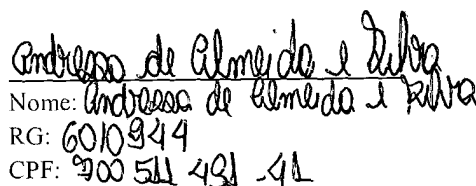 Andressa de Almeida e Silva
Nome: Andressa de Almeida e Silva
RG: 6010944
CPF: 700 511 491 -41